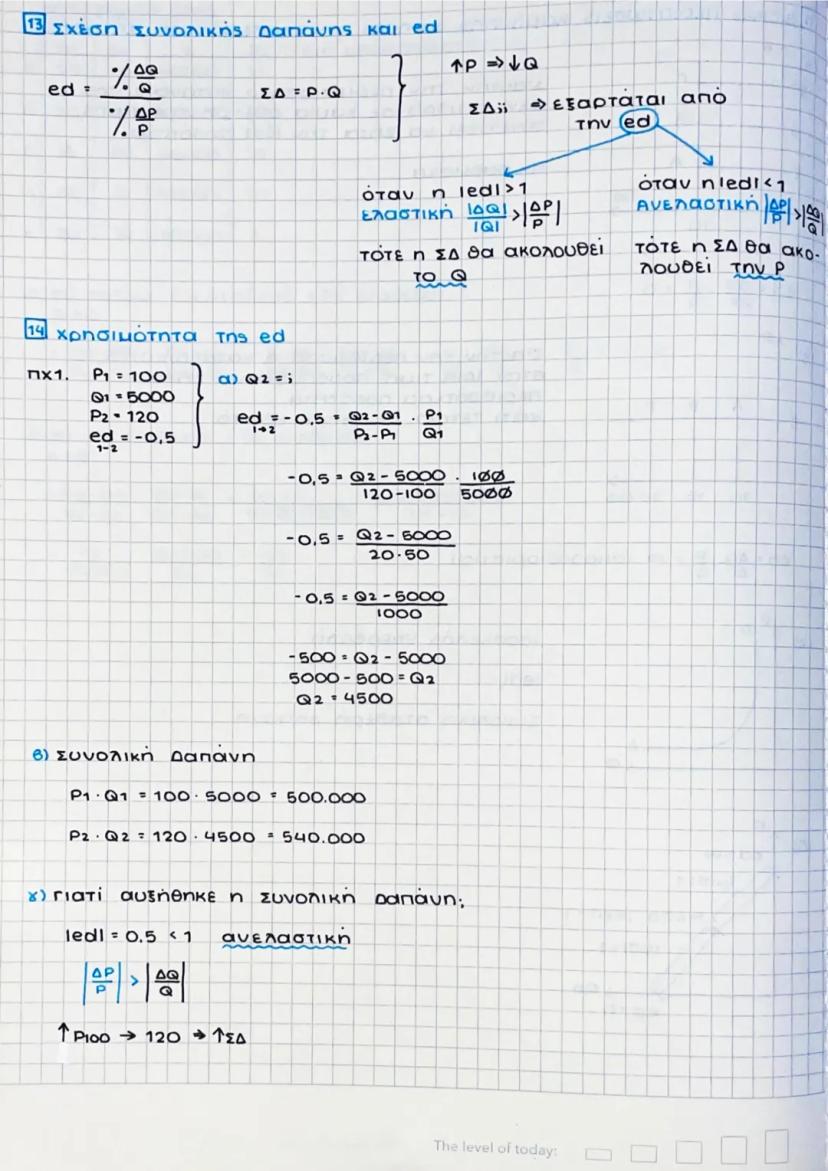 13 Σχέση Συνολικής Δαπάνης και ed
ed = % ΔQ/Q / % ΔP/P
ΣΔ = P·Q
↑P ⇒ ↓Q
ΣΔ;; ⇒ εξαρτάται από
την ed
όταν η |ed| > 1
ελαστική |ΔQ|/|Q| > |ΔP/P|
τότε η ΣΔ θα ακολουθεί
το Q
όταν η |ed| < 1
Ανελαστική |ΔP/P| > |ΔQ/Q|
τότε η ΣΔ θα ακο-
λουθεί την P
14 Χρησιμότητα της ed
πχ1.
P1 = 100
Q1 = 5000
P2 = 120
ed = -0,5
1-2
α) Q2 = ;
ed = -0,5 = Q2-Q1/P2-P1 · P1/Q1
1→2
-0,5 = Q2 - 5000/120-100 · 100/5000
-0,5 = Q2 - 5000/20·50
-0,5 = Q2 - 5000/1000
-500 = Q2 - 5000
5000 - 500 = Q2
Q2 = 4500
β) Συνολική Δαπάνη
P1 · Q1 = 100 · 5000 = 500.000
P2 · Q2 = 120 · 4500 = 540.000
γ) Γιατί αυξήθηκε η Συνολική Δαπάνη;
|ed| = 0.5 < 1 ανελαστική
|ΔP/P| > |ΔQ/Q|
↑P100 → 120 ⇒ ↑ΣΔ
The level of today: